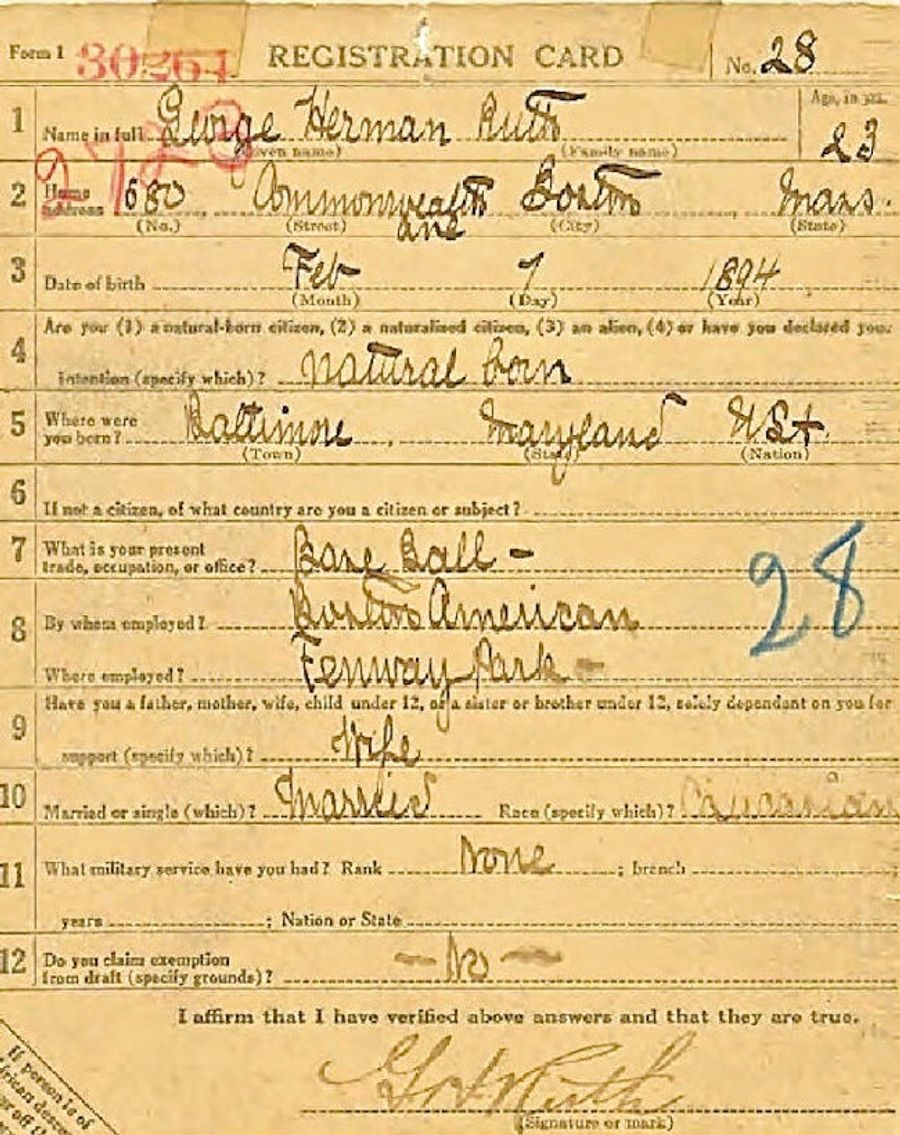 Form 1 30261 REGISTRATION CARD No. 28
1 Name in full George Herman Ruth Age, in yrs. 23
(Given name) (Family name)
2723
2 Home address 680 Commonwealth Ave Boston Mass.
(No.) (Street) (City) (State)
3 Date of birth Feb 7 1894
(Month) (Day) (Year)
Are you (1) a natural-born citizen, (2) a naturalized citizen, (3) an alien, (4) or have you declared your
4 intention (specify which)? natural born
5 Where were you born? Baltimore, Maryland USA
(Town) (State) (Nation)
6 If not a citizen, of what country are you a citizen or subject?
7 What is your present
trade, occupation, or office? Base Ball -
28
8 By whom employed? Boston American
Where employed? Fenway Park -
Have you a father, mother, wife, child under 12, or a sister or brother under 12, solely dependent on you for
9 support (specify which)? Wife
10 Married or single (which)? Married Race (specify which)? Caucasian
11 What military service have you had? Rank None ; branch ;
years ; Nation or State
12 Do you claim exemption
from draft (specify grounds)? - No -
I affirm that I have verified above answers and that they are true.
Geo H Ruth
(Signature or mark)
If person is of
African desc
off